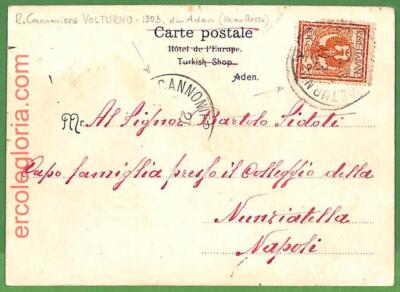 R. Cannoniera VOLTURNO - 1903, da Aden (Mar Rosso)
Carte postale
Hôtel de l'Europe.
Turkish Shop.
Aden.
CANNONIE
VOLTURN
Al Signor Bartolo Sidoti
Capo famiglia presso il Colleggio della
Nunziatella
Napoli
ercolegloria.com